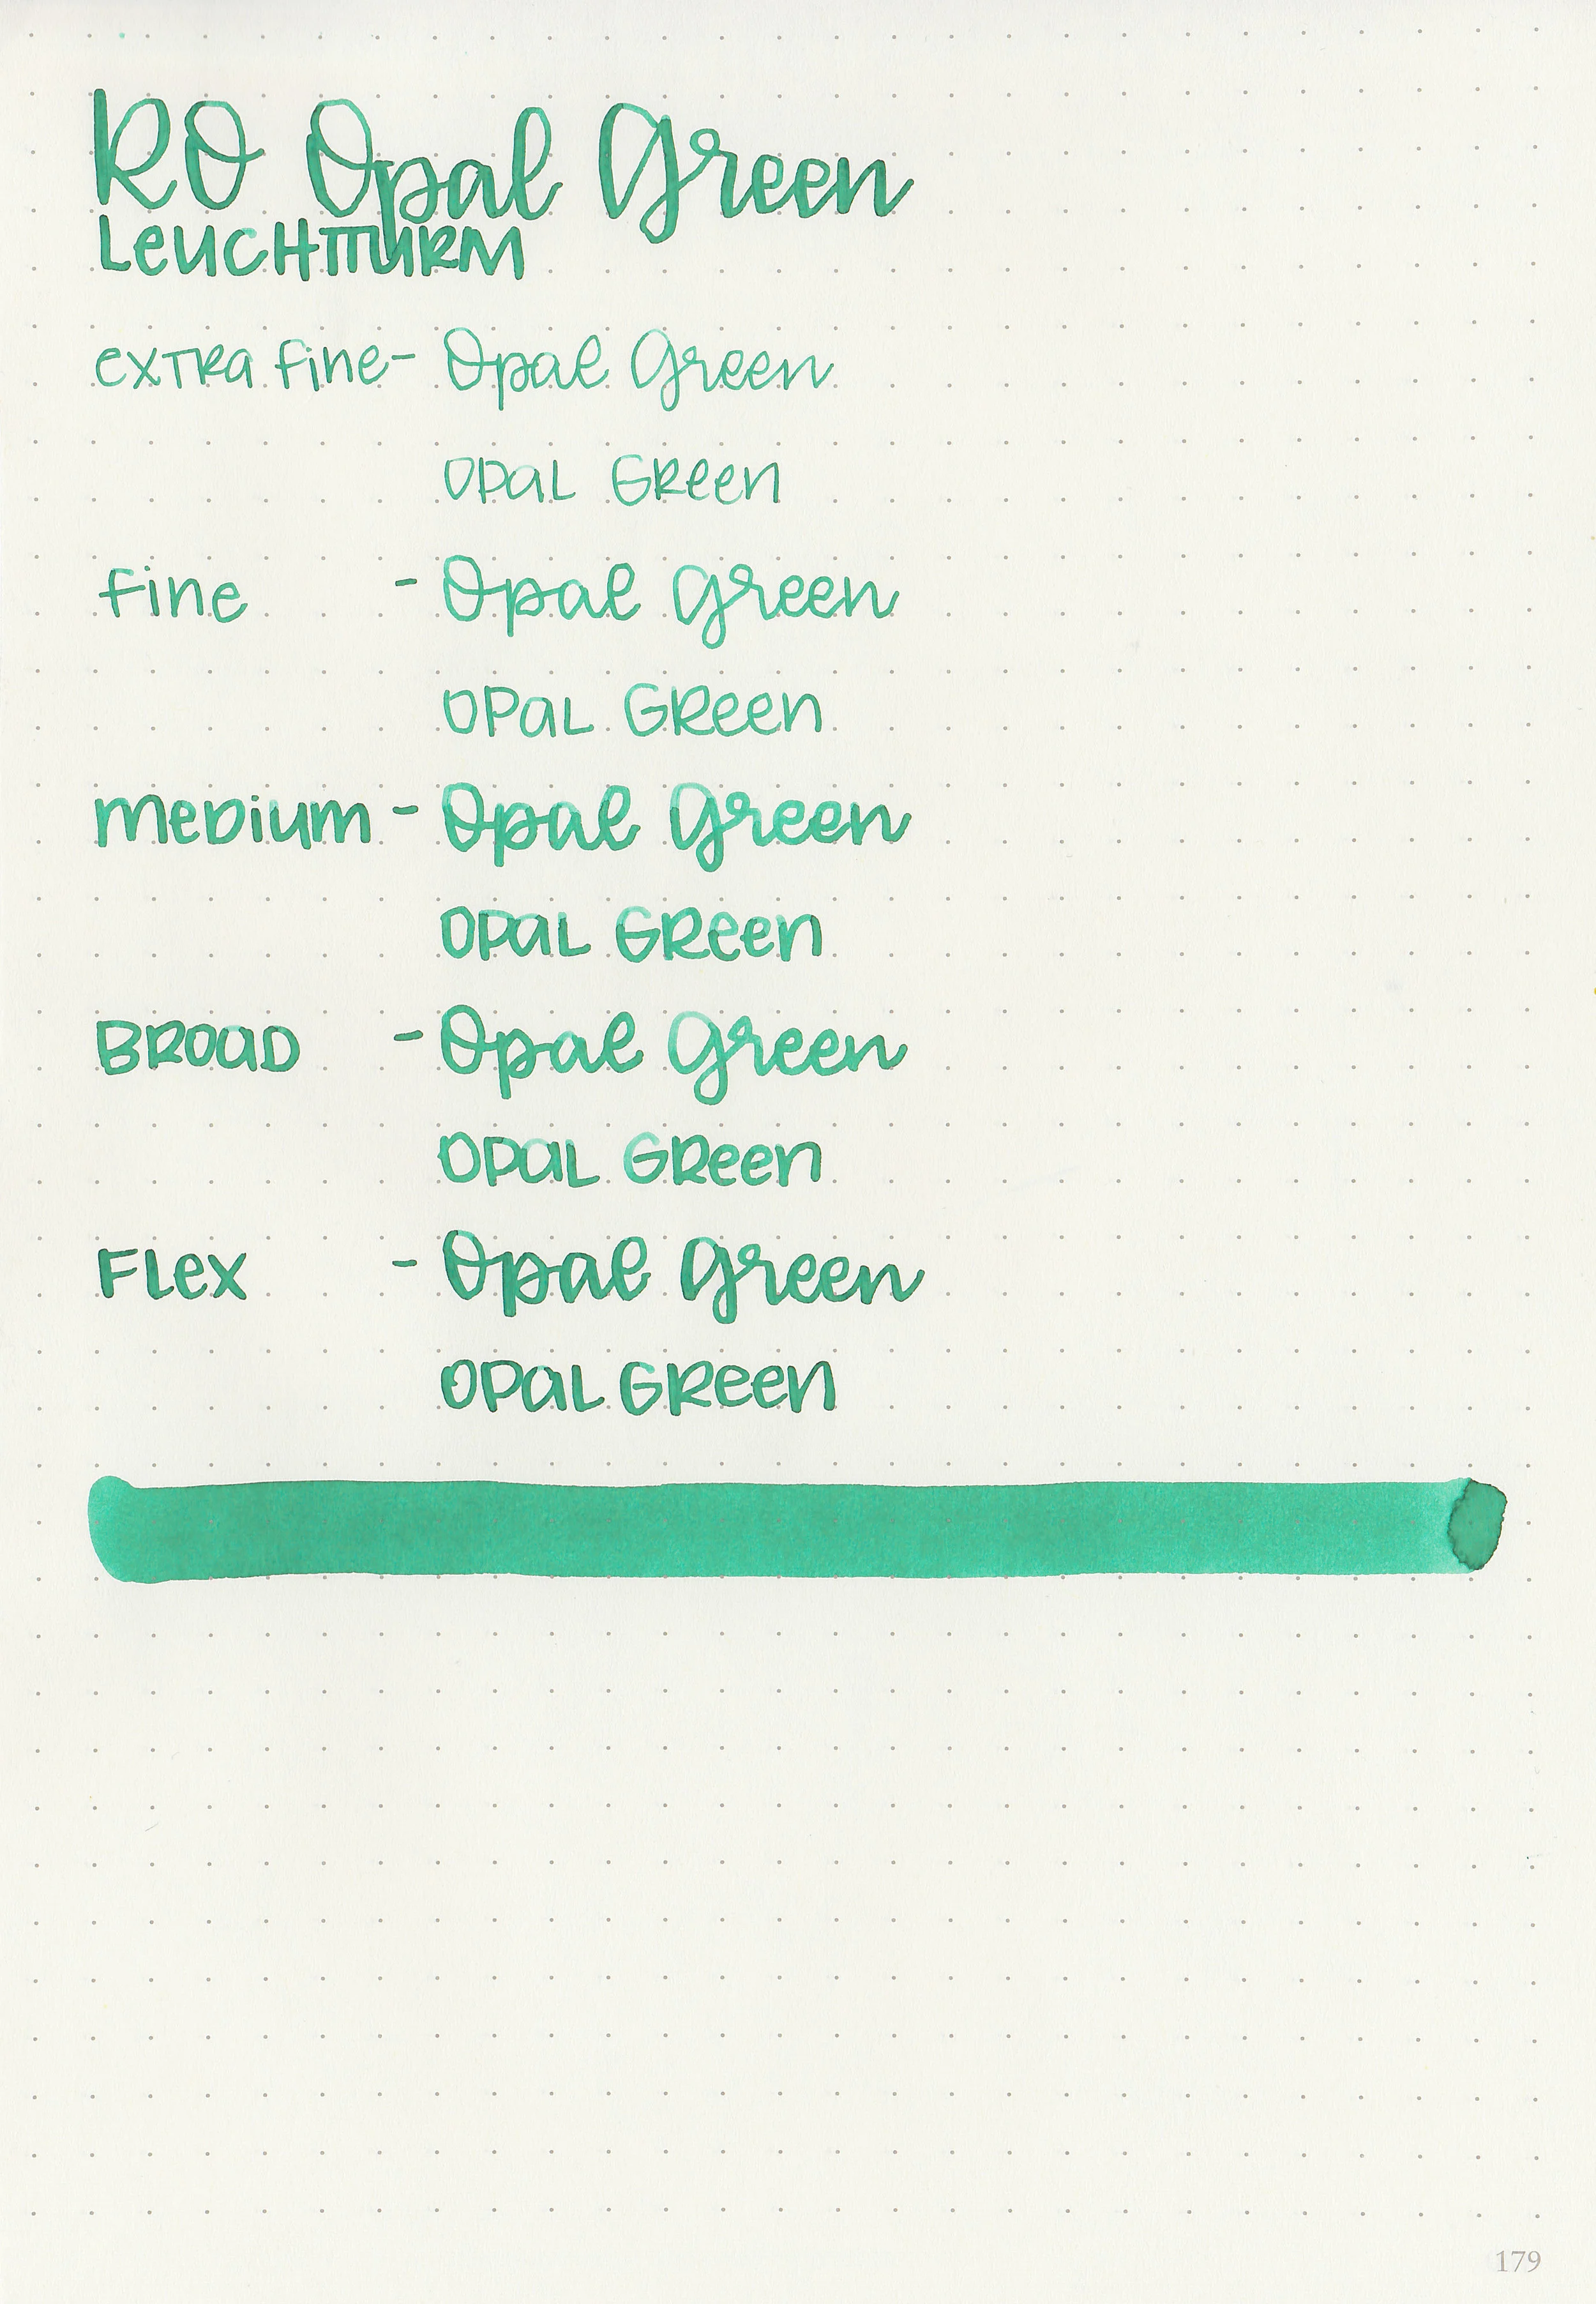 RO Opal Green
LEUCHTTURM
extra fine - Opal Green
OPAL GREEN
fine - Opal Green
OPAL GREEN
medium - Opal Green
OPAL GREEN
BROAD - Opal Green
OPAL GREEN
FLEX - Opal Green
OPAL GREEN
179